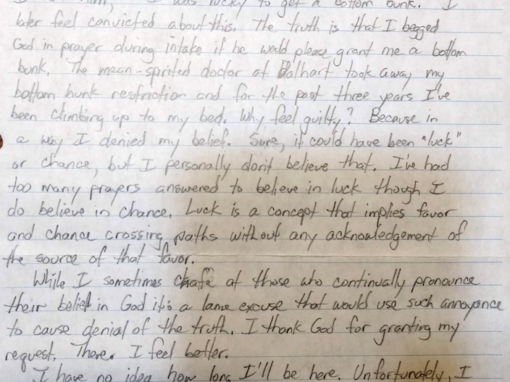 was lucky to get a bottom bunk. I
later feel convicted about this. The truth is that I begged
God in prayer during intake if he would please grant me a bottom
bunk. The mean-spirited doctor at Dalhart took away my
bottom bunk restriction and for the past three years I've
been climbing up to my bed. Why feel guilty? Because in
a way I denied my belief. Sure, it could have been "luck"
or chance, but I personally don't believe that. I've had
too many prayers answered to believe in luck though I
do believe in chance. Luck is a concept that implies favor
and chance crossing paths without any acknowledgement of
the source of that favor.
While I sometimes chafe at those who continually pronounce
their belief in God it's a lame excuse that would use such annoyance
to cause denial of the truth. I thank God for granting my
request. There. I feel better.
I have no idea how long I'll be here. Unfortunately, I